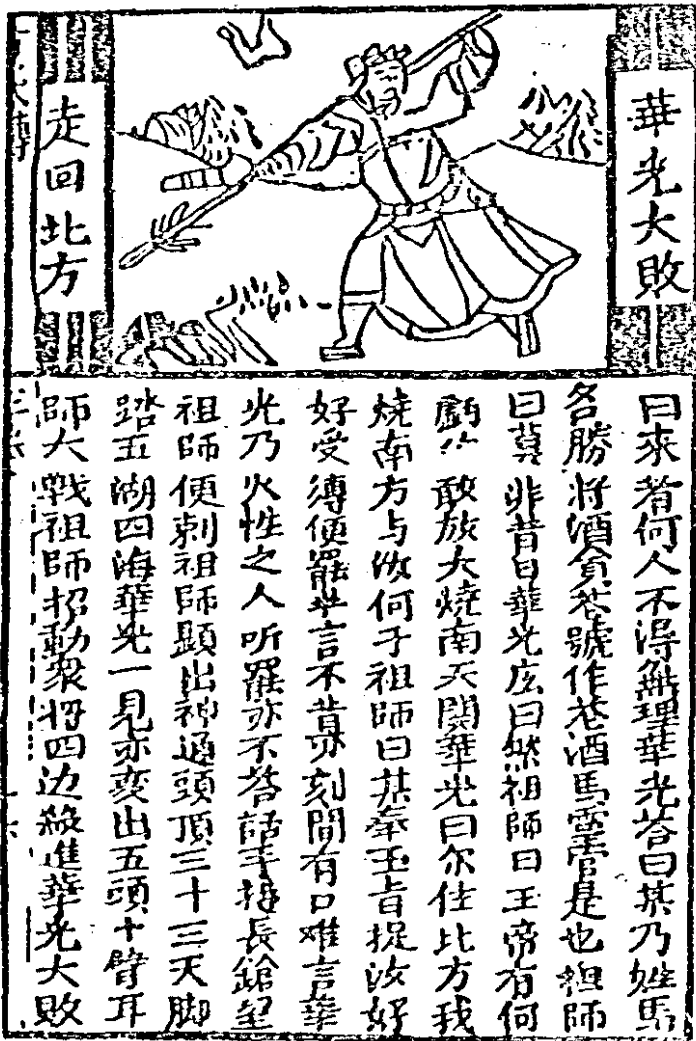 華光大敗
走回北方
曰來者何人不得無理華光荅曰某乃姓馬
各勝将酒負荅號作荅酒馬灵官是也祖師
曰莫非昔日華光庅曰然祖師曰王帝有何
虧尔敢放火燒南天關華光曰尔住比方我
燒南方与汝何干祖師曰某奉玉旨捉汝好
好受縛便罷半言不肯刻間有口难言華
光乃火性之人听罷亦不荅話手提長鎗望
祖師便刺祖師顕出神通頭頂三十三天脚
踏五湖四海華光一見亦变出五頭十臂
師大戰祖師招動衆将四边殺進華光大敗